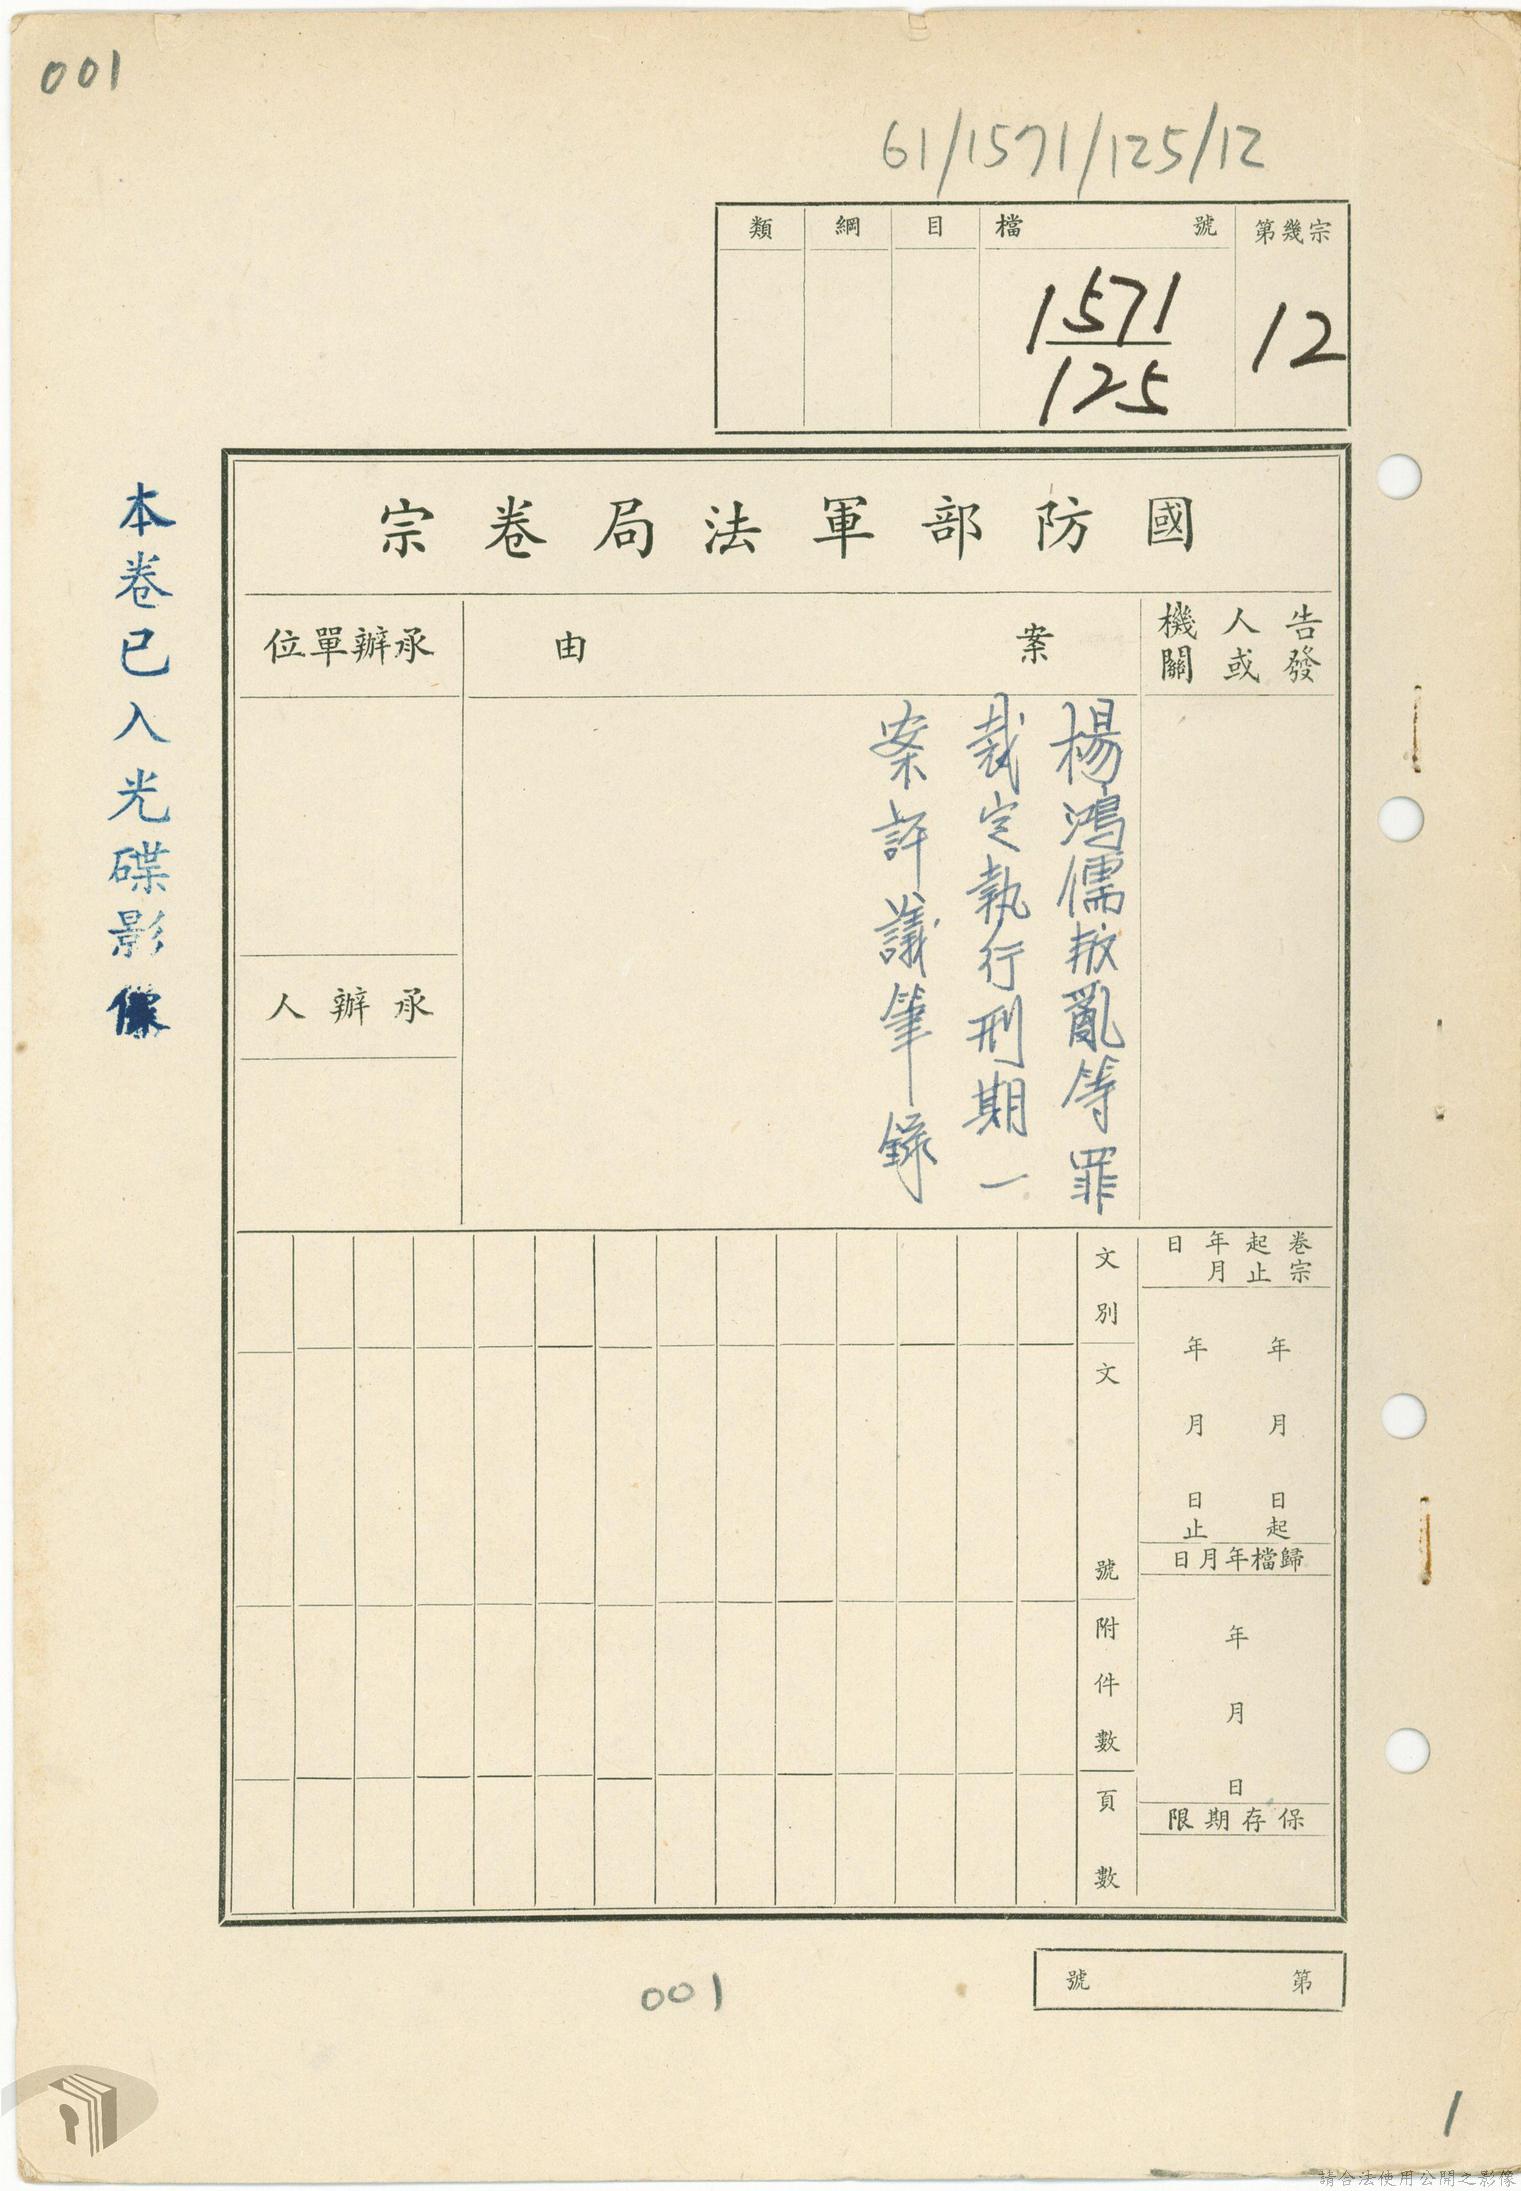 001
61/1571/125/12
類 綱 目 檔號 第幾宗
1571
125
12
國防部軍法局卷宗
告發人或機關
案由
承辦單位
楊鴻儒叛亂等罪
裁定執行刑期一
案評議筆錄
承辦人
本卷已入光碟影像
卷宗起止年月日
年月日起
年月日止
歸檔年月日
年月日
保存期限
文別
文號
附件數
頁數
第號
001
1
請合法使用公開之影像